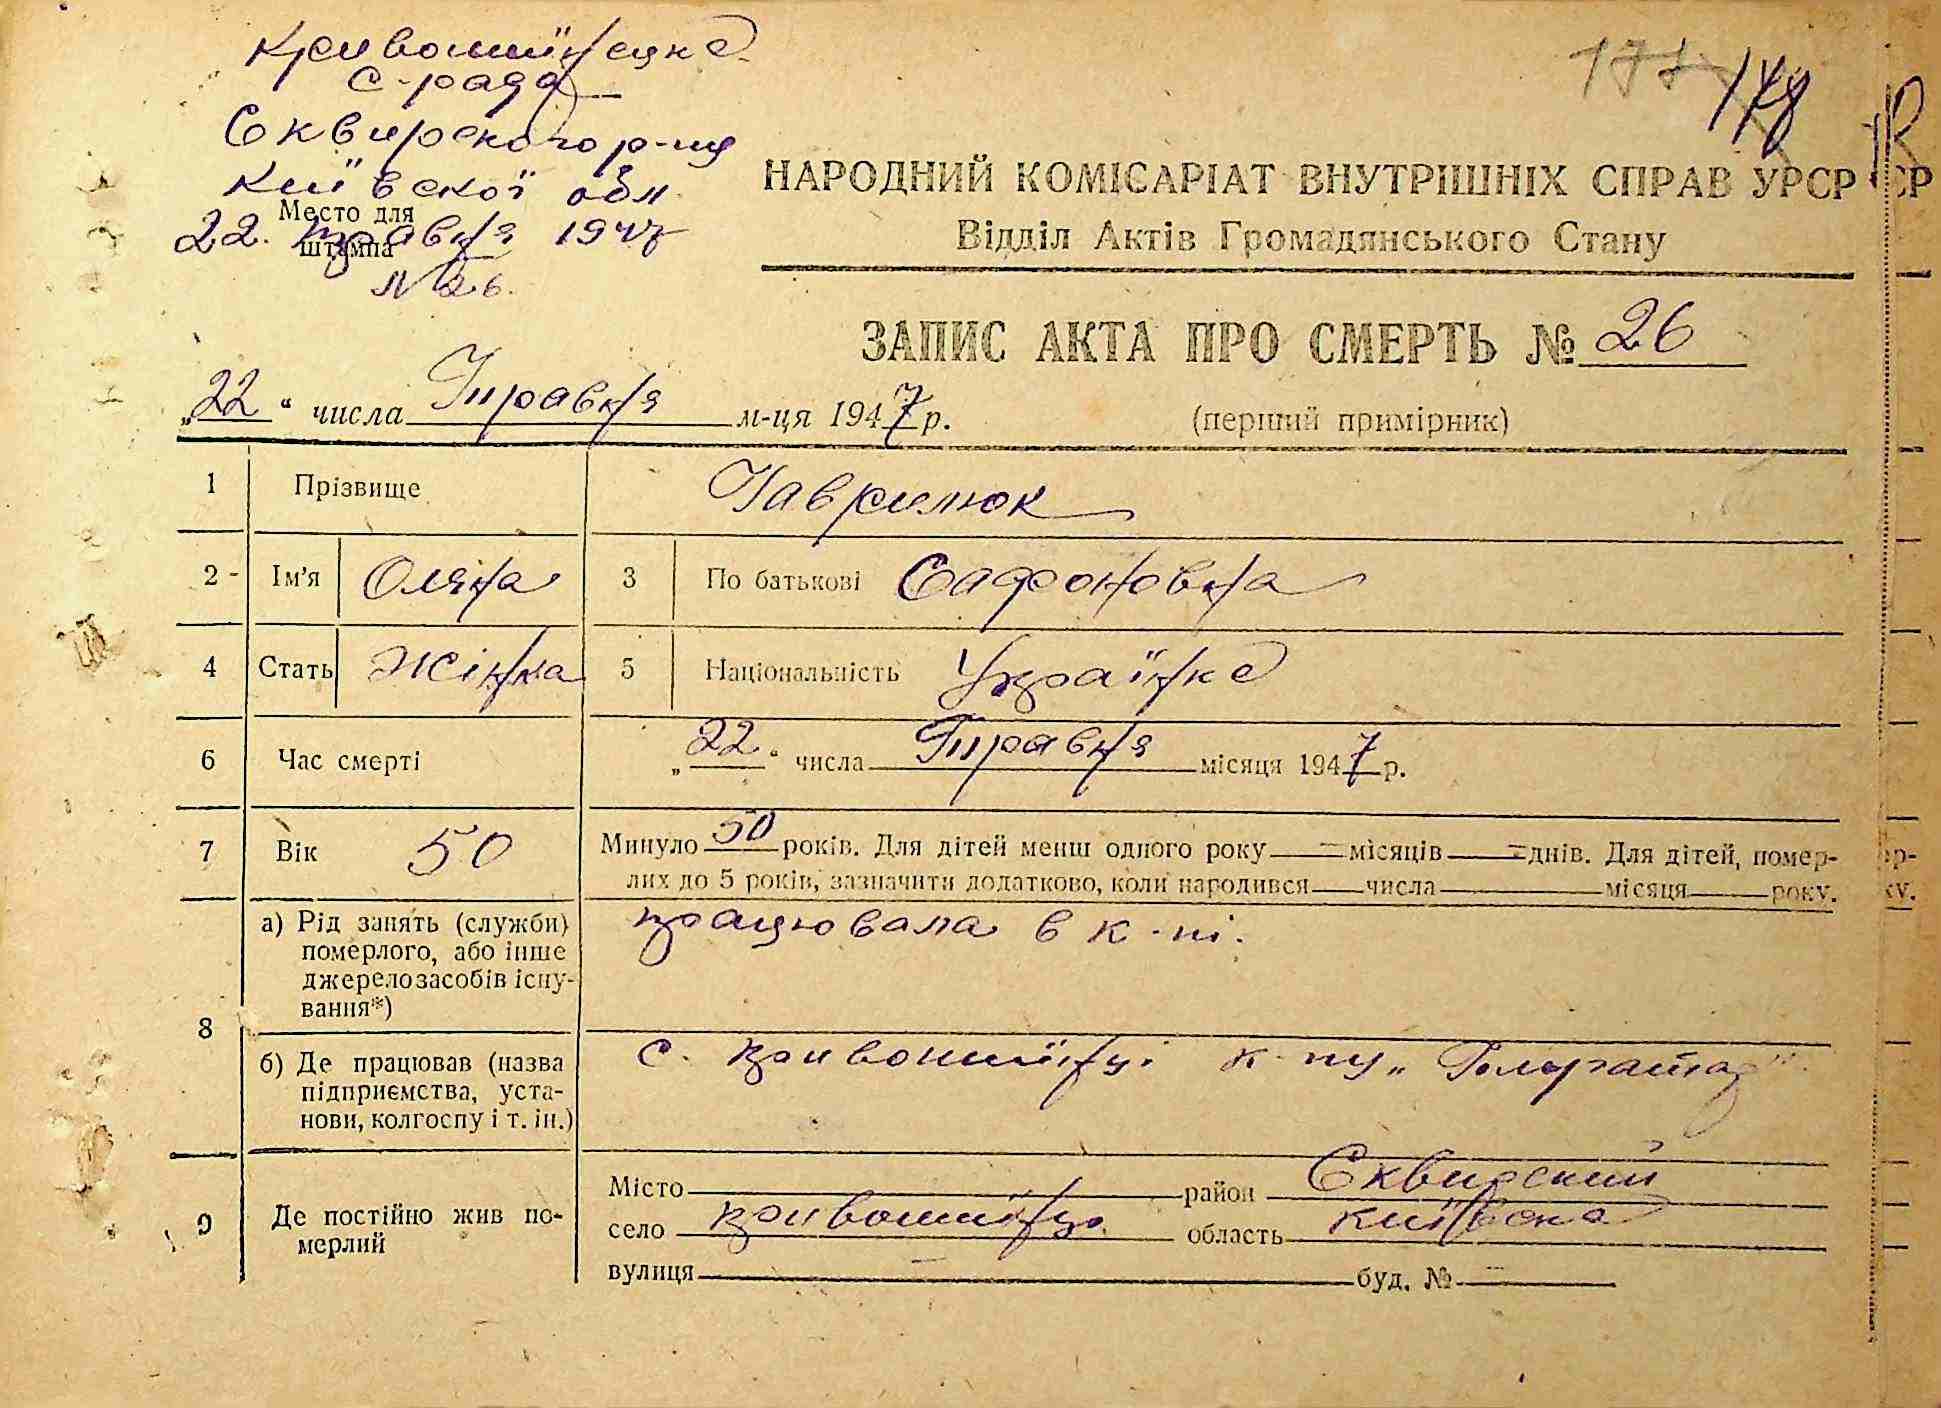 Кривошиїнецка
с-рада
Сквирского р-ну
Київскої обл
Место для
штампа
22. травня 1947
№ 26.
177 178
НАРОДНИЙ КОМІСАРІАТ ВНУТРІШНІХ СПРАВ УРСР
Відділ Актів Громадянського Стану
ЗАПИС АКТА ПРО СМЕРТЬ № 26
„22“ числа Травня м-ця 1947 р. (перший примірник)
1 Прізвище Гаврилюк
2 Ім'я Оляна 3 По батькові Сафоновна
4 Стать Жінка 5 Національність Українка
6 Час смерті „22“ числа Травня місяця 1947 р.
7 Вік 50 Минуло 50 років. Для дітей менш одного року — місяців — днів. Для дітей, помер-
лих до 5 років, зазначити додатково, коли народився числа місяця року.
8 а) Рід занять (служби) померлого, або інше джерело засобів існу-вання*) працювала в к-пі.
б) Де працював (назва підприємства, уста-нови, колгоспу і т. ін.) с. Кривошиїнці к-пу „
9 Де постійно жив по-мерлий
Місто район Сквирский
село Кривошиїнці область Київска
вулиця — буд. № —